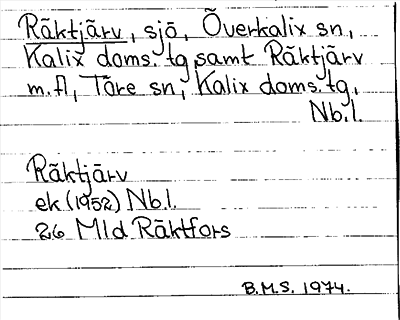 Räktjärv, sjö, Överkalix sn,
Kalix doms. tg samt Räktjärv
m.fl, Töre sn, Kalix doms. tg,
Nb.l.
Räktjärv
ek (1952) Nb.l.
26 Mld Räktfors
B.M.S. 1974.